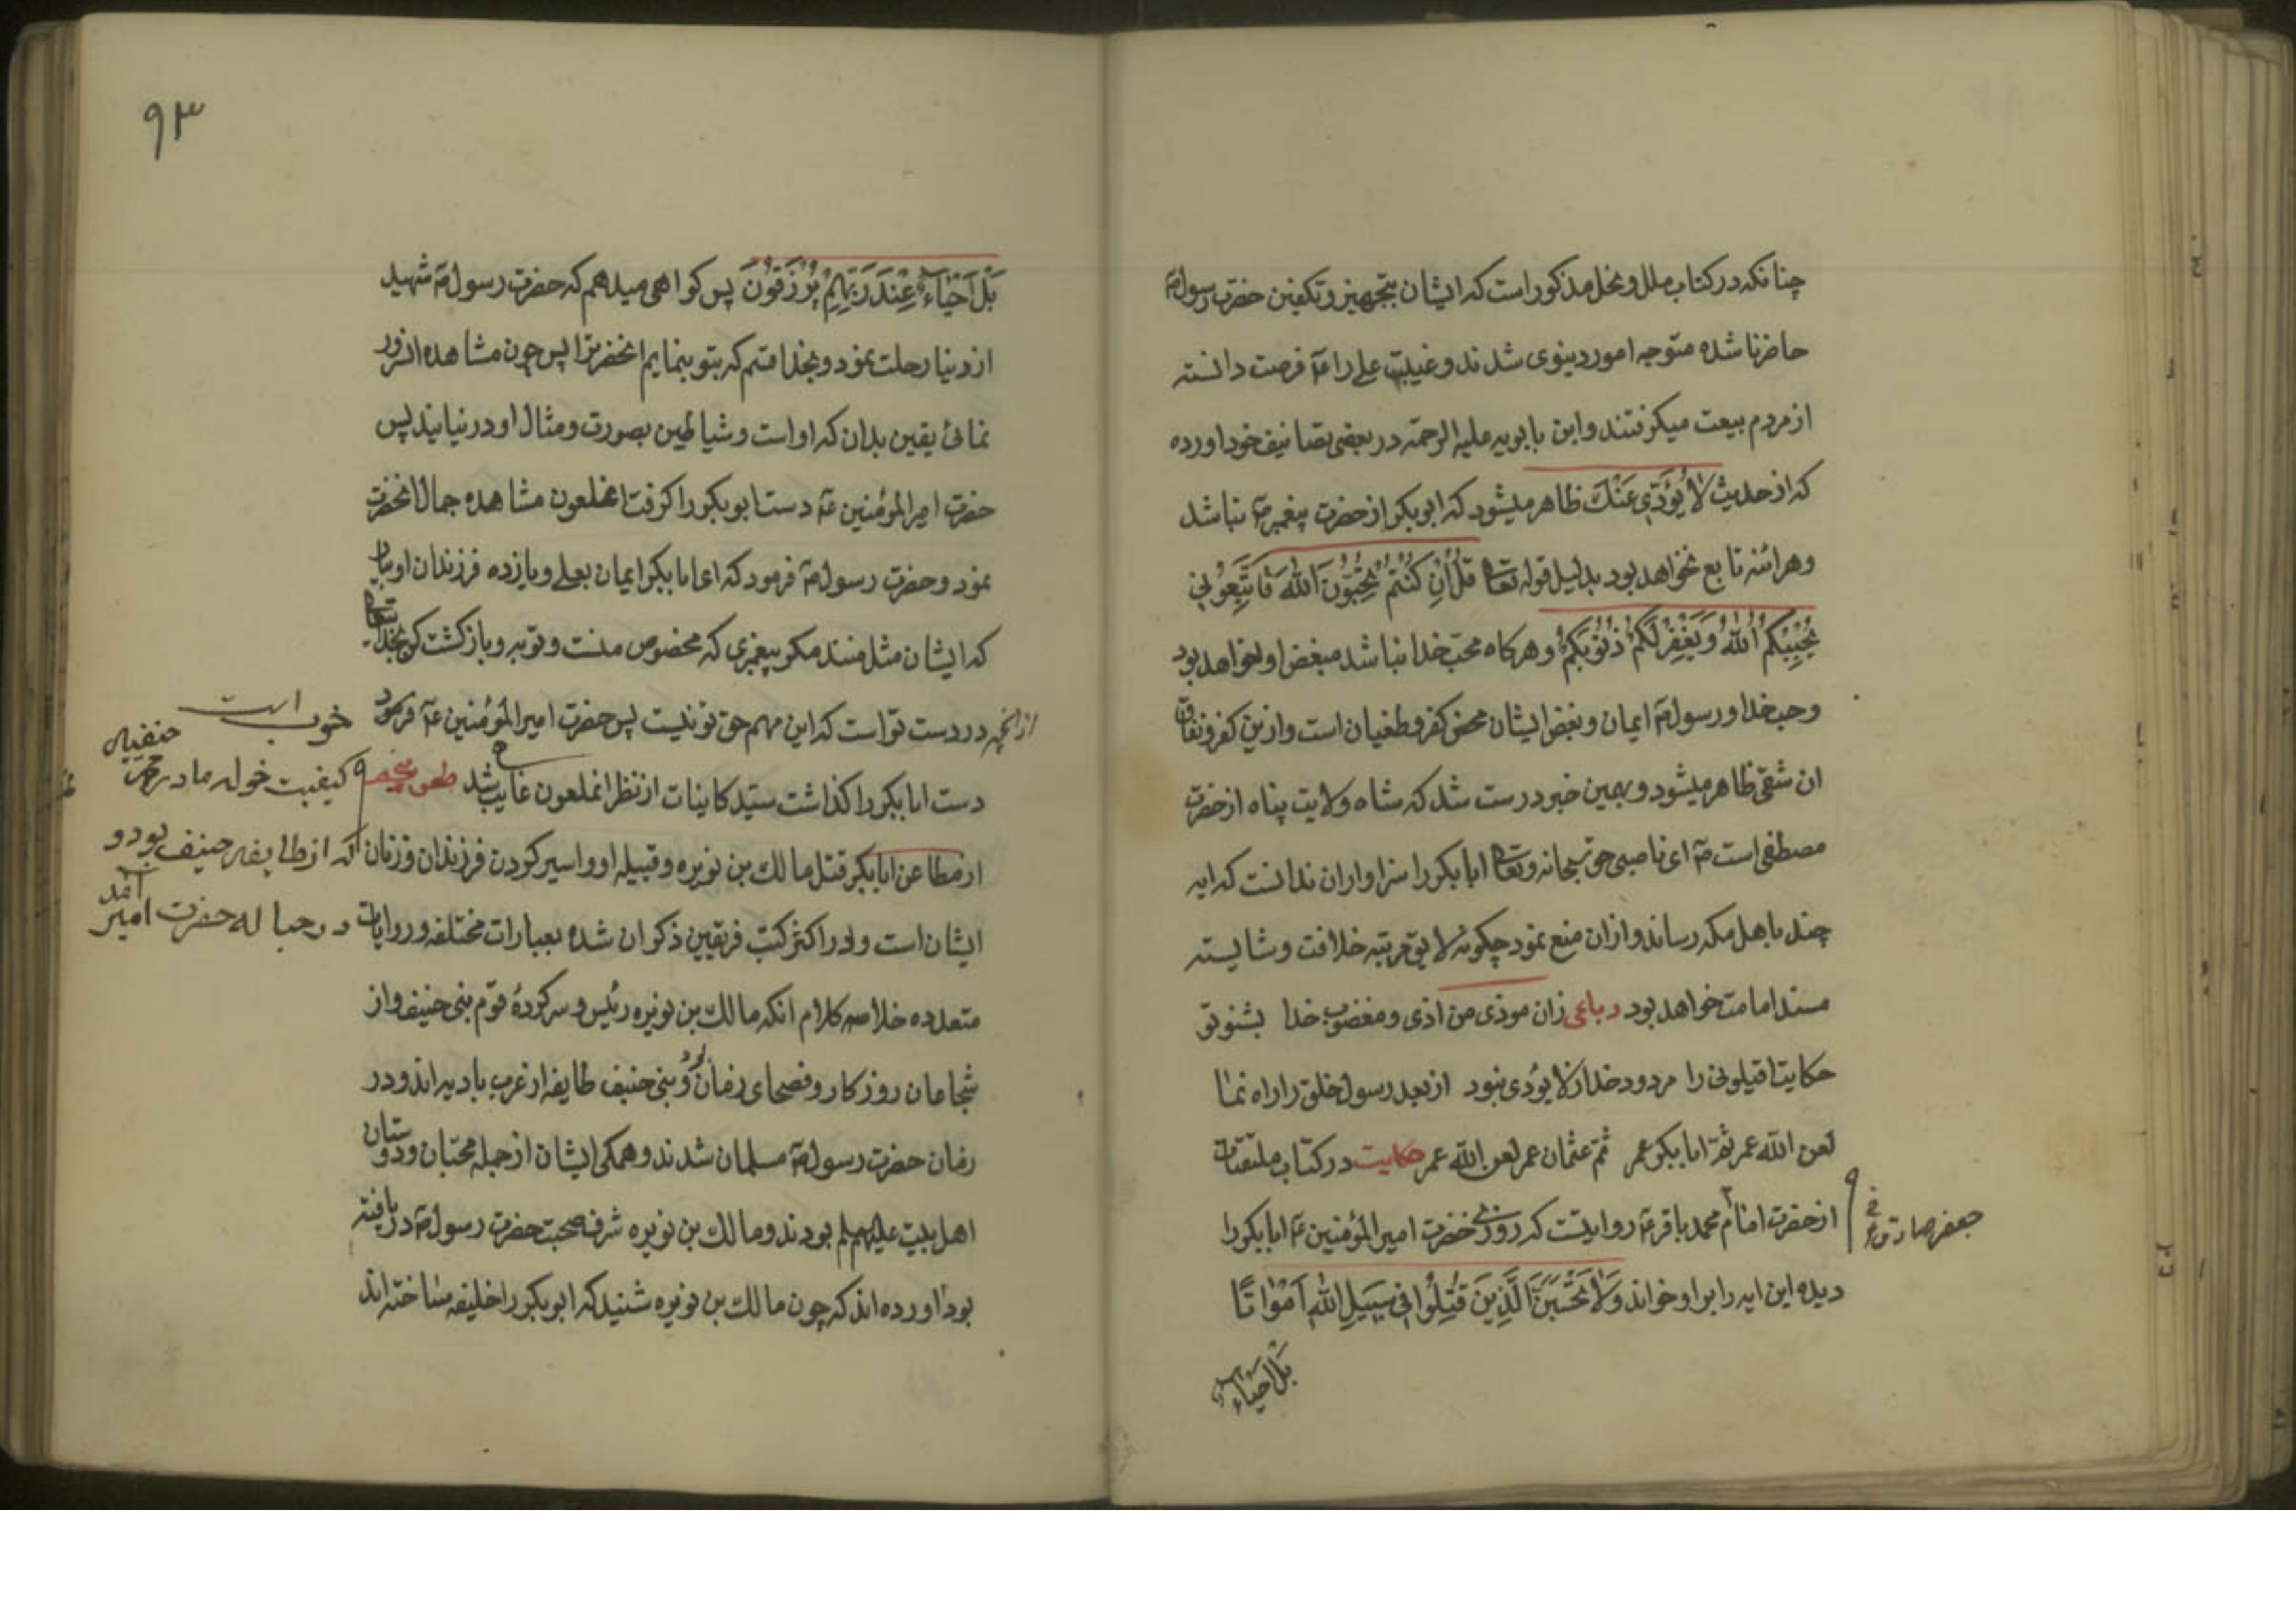 چنانکه در کتاب ملل و نحل مذکور است که ایشان بتجهیز و تکفین حضرت رسول ص
حاضر نا شده متوجه امور دینوی شدند و غیبت علی را عم فرصت دانسته
از مردم بیعت میکرفتند و ابن بابویه علیه الرحمة در بعضی تصانیف خود اورده
که از حدیث لا یُؤَدّی عَنْكَ ظاهر میشود که ابوبکر از حضرت پیغمبر ص نباشد
و هراینه تابع نخواهد بود بدلیل قوله تعا قُلْ اِنْ کُنْتُمْ تُحِبُّونَ اللّٰهَ فَاتَّبِعُونی
یُحْبِبْکُمُ اللّٰهُ وَ یَغْفِرْ لَکُمْ ذُنُوبَکُمْ و هرکاه محب خدا نباشد مبغض او خواهد بود
و حب خدا و رسول ص ایمان و بغض ایشان محض کفر و طغیان است و ازین کفر و نفاق
ان شقی ظاهر میشود و بهمین خبر درست شد که شاه ولایت پناه از حضرت
مصطفی است ص ای ناصبی حق سبحانه و تعا ابابکر را سزاوار ان ندانست که ایه
چند باهل مکه رساند و ازان منع نمود چکونه لایق مرتبه خلافت و شایسته
مسند امامت خواهد بود رباعی زان موذی من اذی و مغضوب خدا بشنو تو
حکایت اقیلونی را مردود خدا ز لا یؤدی نبود از بعد رسول خلق را راه نما
لعن اللّٰه عمر ثم ابابکر عمر ثم عثمان عمر لعن اللّٰه عمر حکایت در کتاب
از حضرت امام محمد باقر ع روایتست که روزی حضرت امیر المؤمنین ع ابابکر را
جعفر صادق ع
دیده این ایه را بر او خواند وَلٰا تَحْسَبَنَّ الَّذِینَ قُتِلُوا فِی سَبِیلِ اللّٰهِ اَمْوٰاتًا
بَلْ اَحْیٰاءٌ
۹۳
بَلْ اَحْیٰاءٌ عِنْدَ رَبِّهِمْ یُرْزَقُونَ پس کواهی میدهم که حضرت رسول ص شهید
از دنیا رحلت نمود و بخدا قسم که بتو بنمایم انحضرترا پس چون مشاهده انسرور
نمائی یقین بدان که او است و شیاطین بصورت و مثال او درنیایند پس
حضرت امیر المؤمنین ع دست ابوبکر را کرفت انملعون مشاهده جمال انحضرت
نمود و حضرت رسول ص فرمود که ای ابابکر ایمان بعلی و یازده فرزندان او بیار
که ایشان مثل منند مکر پیغمبری که مخصوص منست و توبه و بازکشت کن بخدا تعا
از انچه در دست تو است که این مهم حق تو نیست پس حضرت امیر المؤمنین ع فرمود خوب است
دست ابابکر را کذاشت سید کاینات از نظر انملعون غایب شد طعن پنجم
ازمطاعن ابابکر قتل مالك بن نویره و قبیله او و اسیر کردن فرزندان و زنان
کیفیت خوله مادر محمد حنفیه
که از طایفه حنیف بود و
در حباله حضرت امیر آمد
ایشان است و در اکثر کتب فریقین ذکر ان شده بعبارات مختلفه و روایات
متعدده خلاصه کلام انکه مالك بن نویره رئیس و سرکردهٔ قوم بنی حنیف و از
شجاعان روزکار و فصحای زمان بود و بنی حنیف طایفه از غرب بادیه اند و در
زمان حضرت رسول ص مسلمان شدند و همکی ایشان از جمله محبان و دوستان
اهل بیت علیهم بودند و مالك بن نویره شرف صحبت حضرت رسول ص دریافته
بود اورده اند که چون مالك بن نویره شنید که ابوبکر را خلیفه ساخته اند